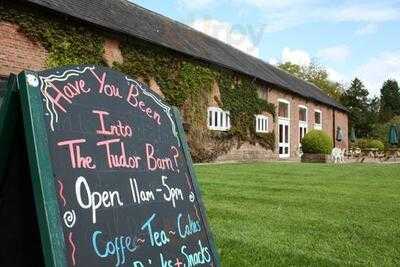 Have You Been
Into
The Tudor Barn?
Open 11am - 5pm
Coffee ~ Teas ~ Cakes
Drinks + Snacks